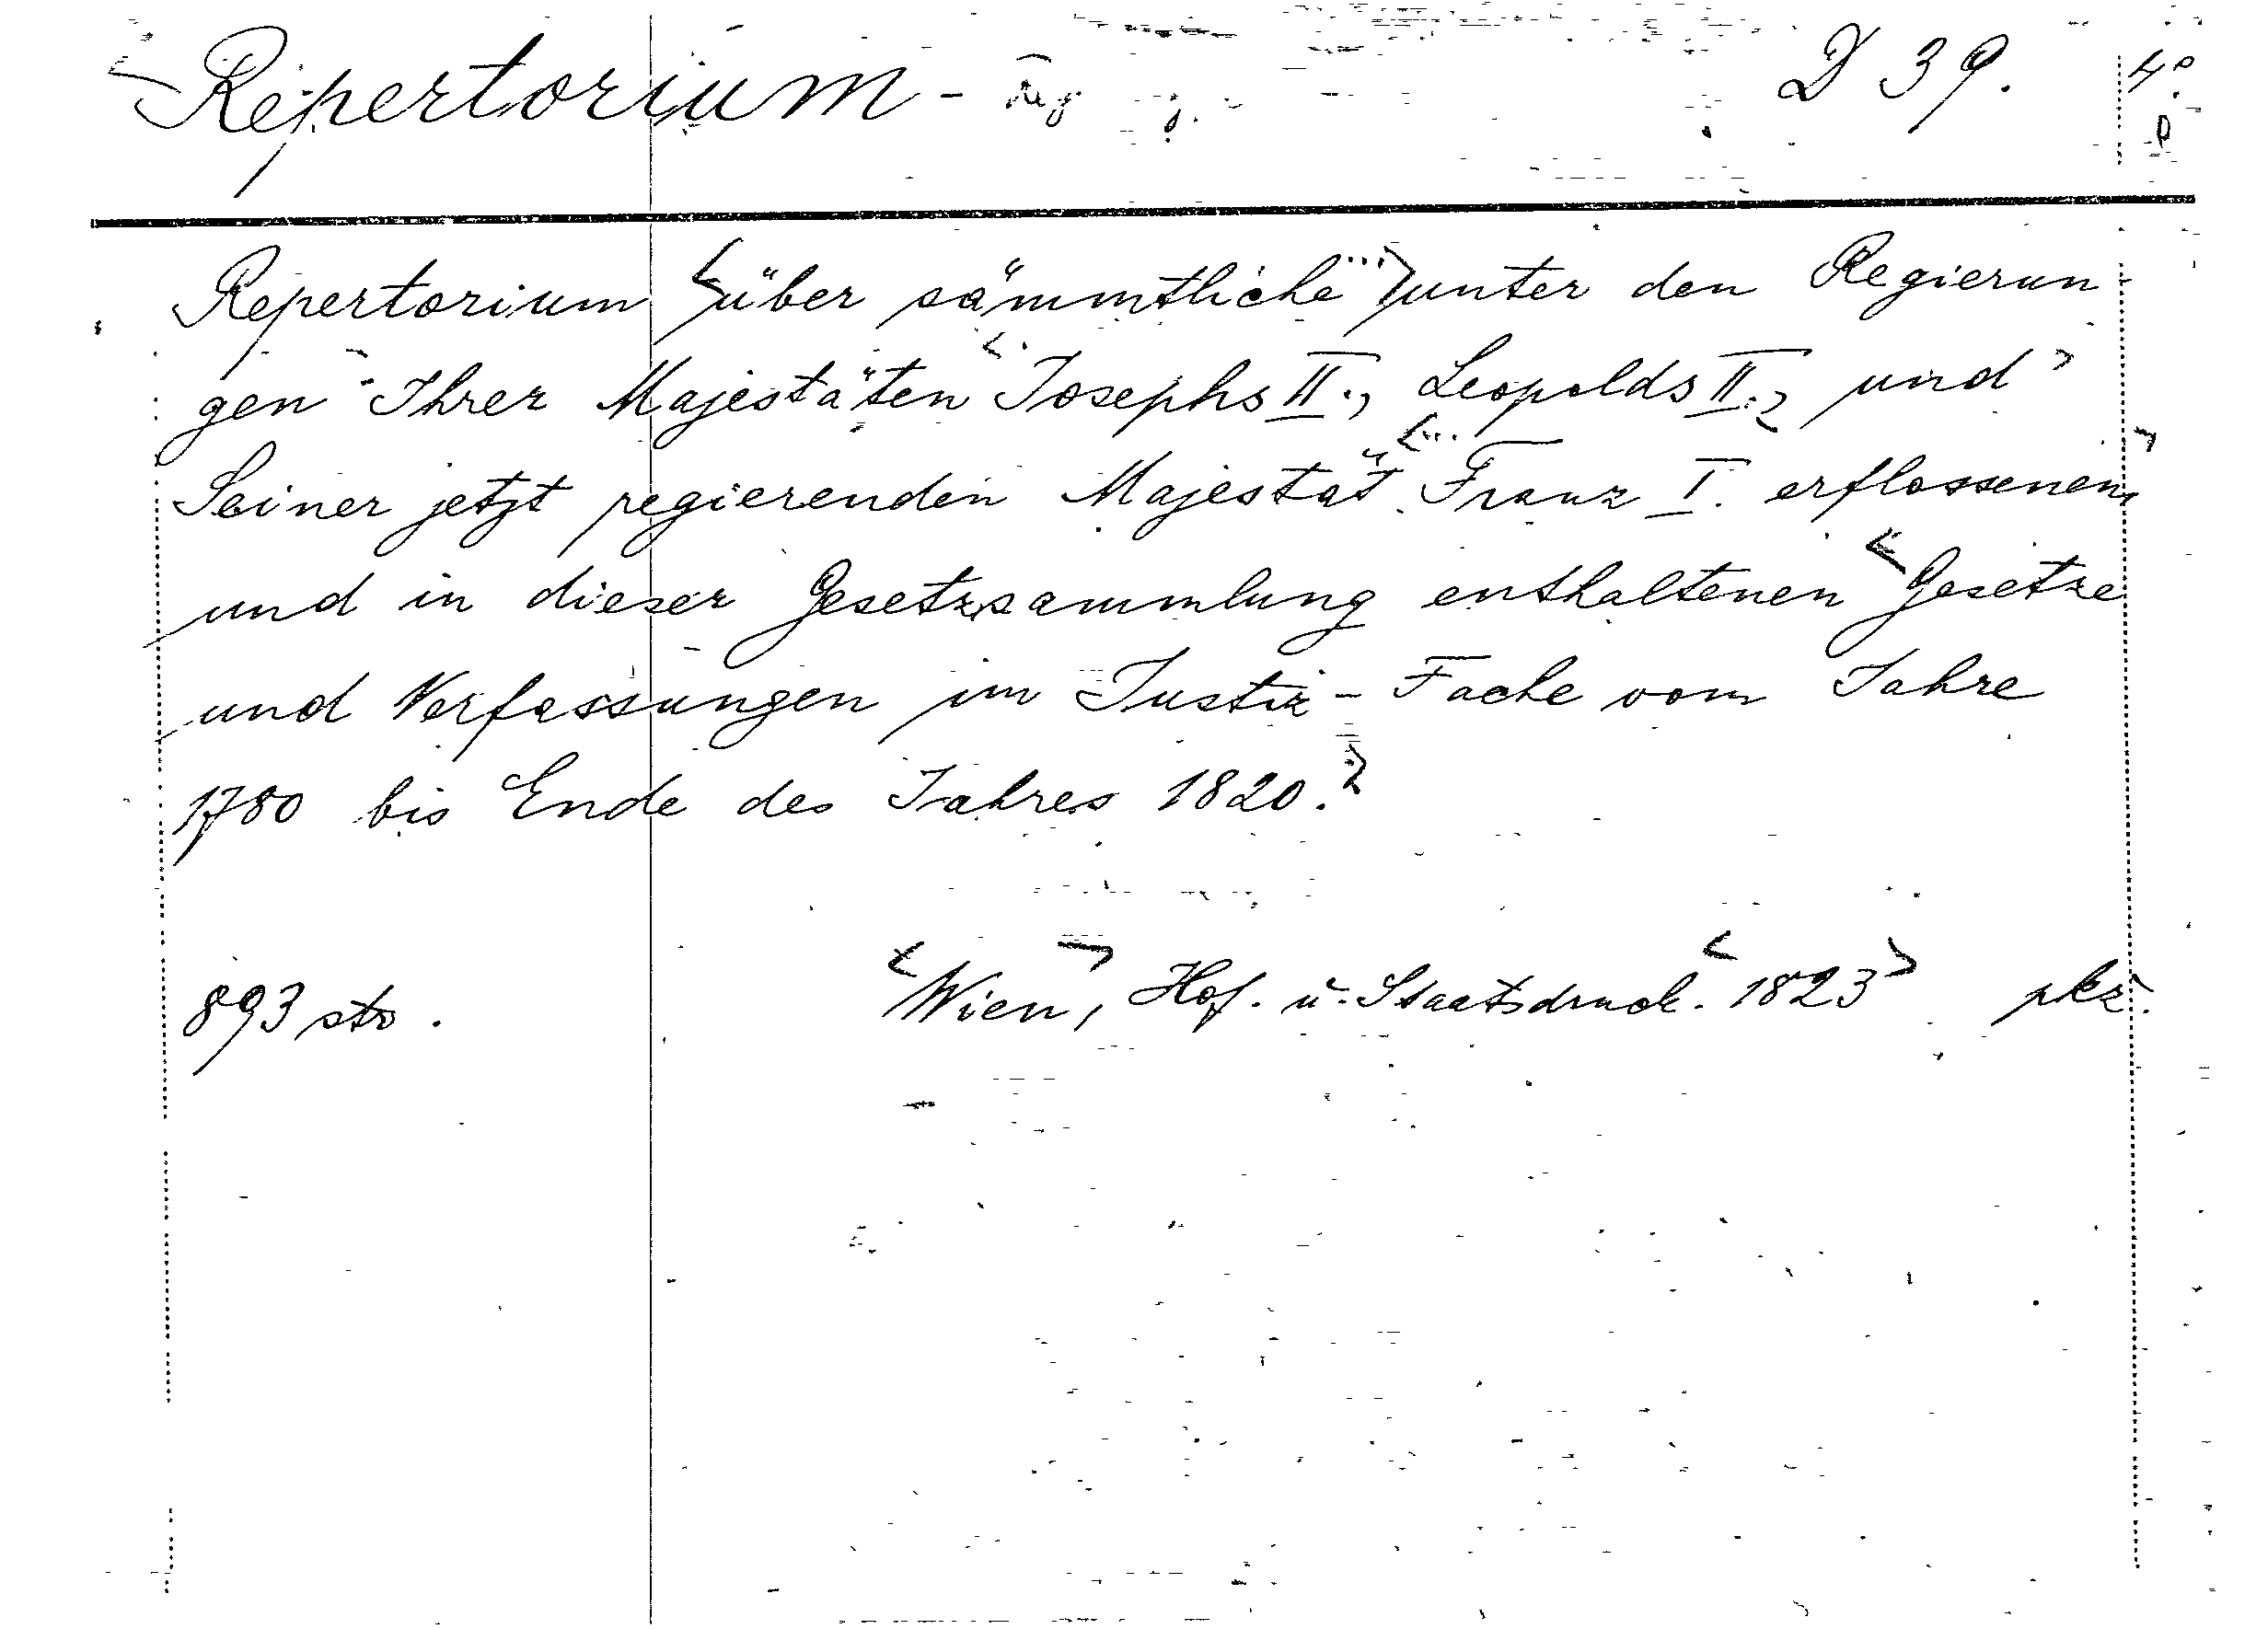 Repertorium - D 39. 4°.
Repertorium über sämmtliche ... unter den Regierun-
gen Ihrer Majestäten Josephs II., Leopolds II., und
Seiner jetzt regierenden Majestät Franz I. erflossenen,
und in dieser Gesetzsammlung enthaltenen Gesetze
und Verfassungen im Justiz-Fache vom Jahre
1780 bis Ende des Jahres 1820.
893 str. Wien, Hof. u. Staatsdruck. 1823 pkz.